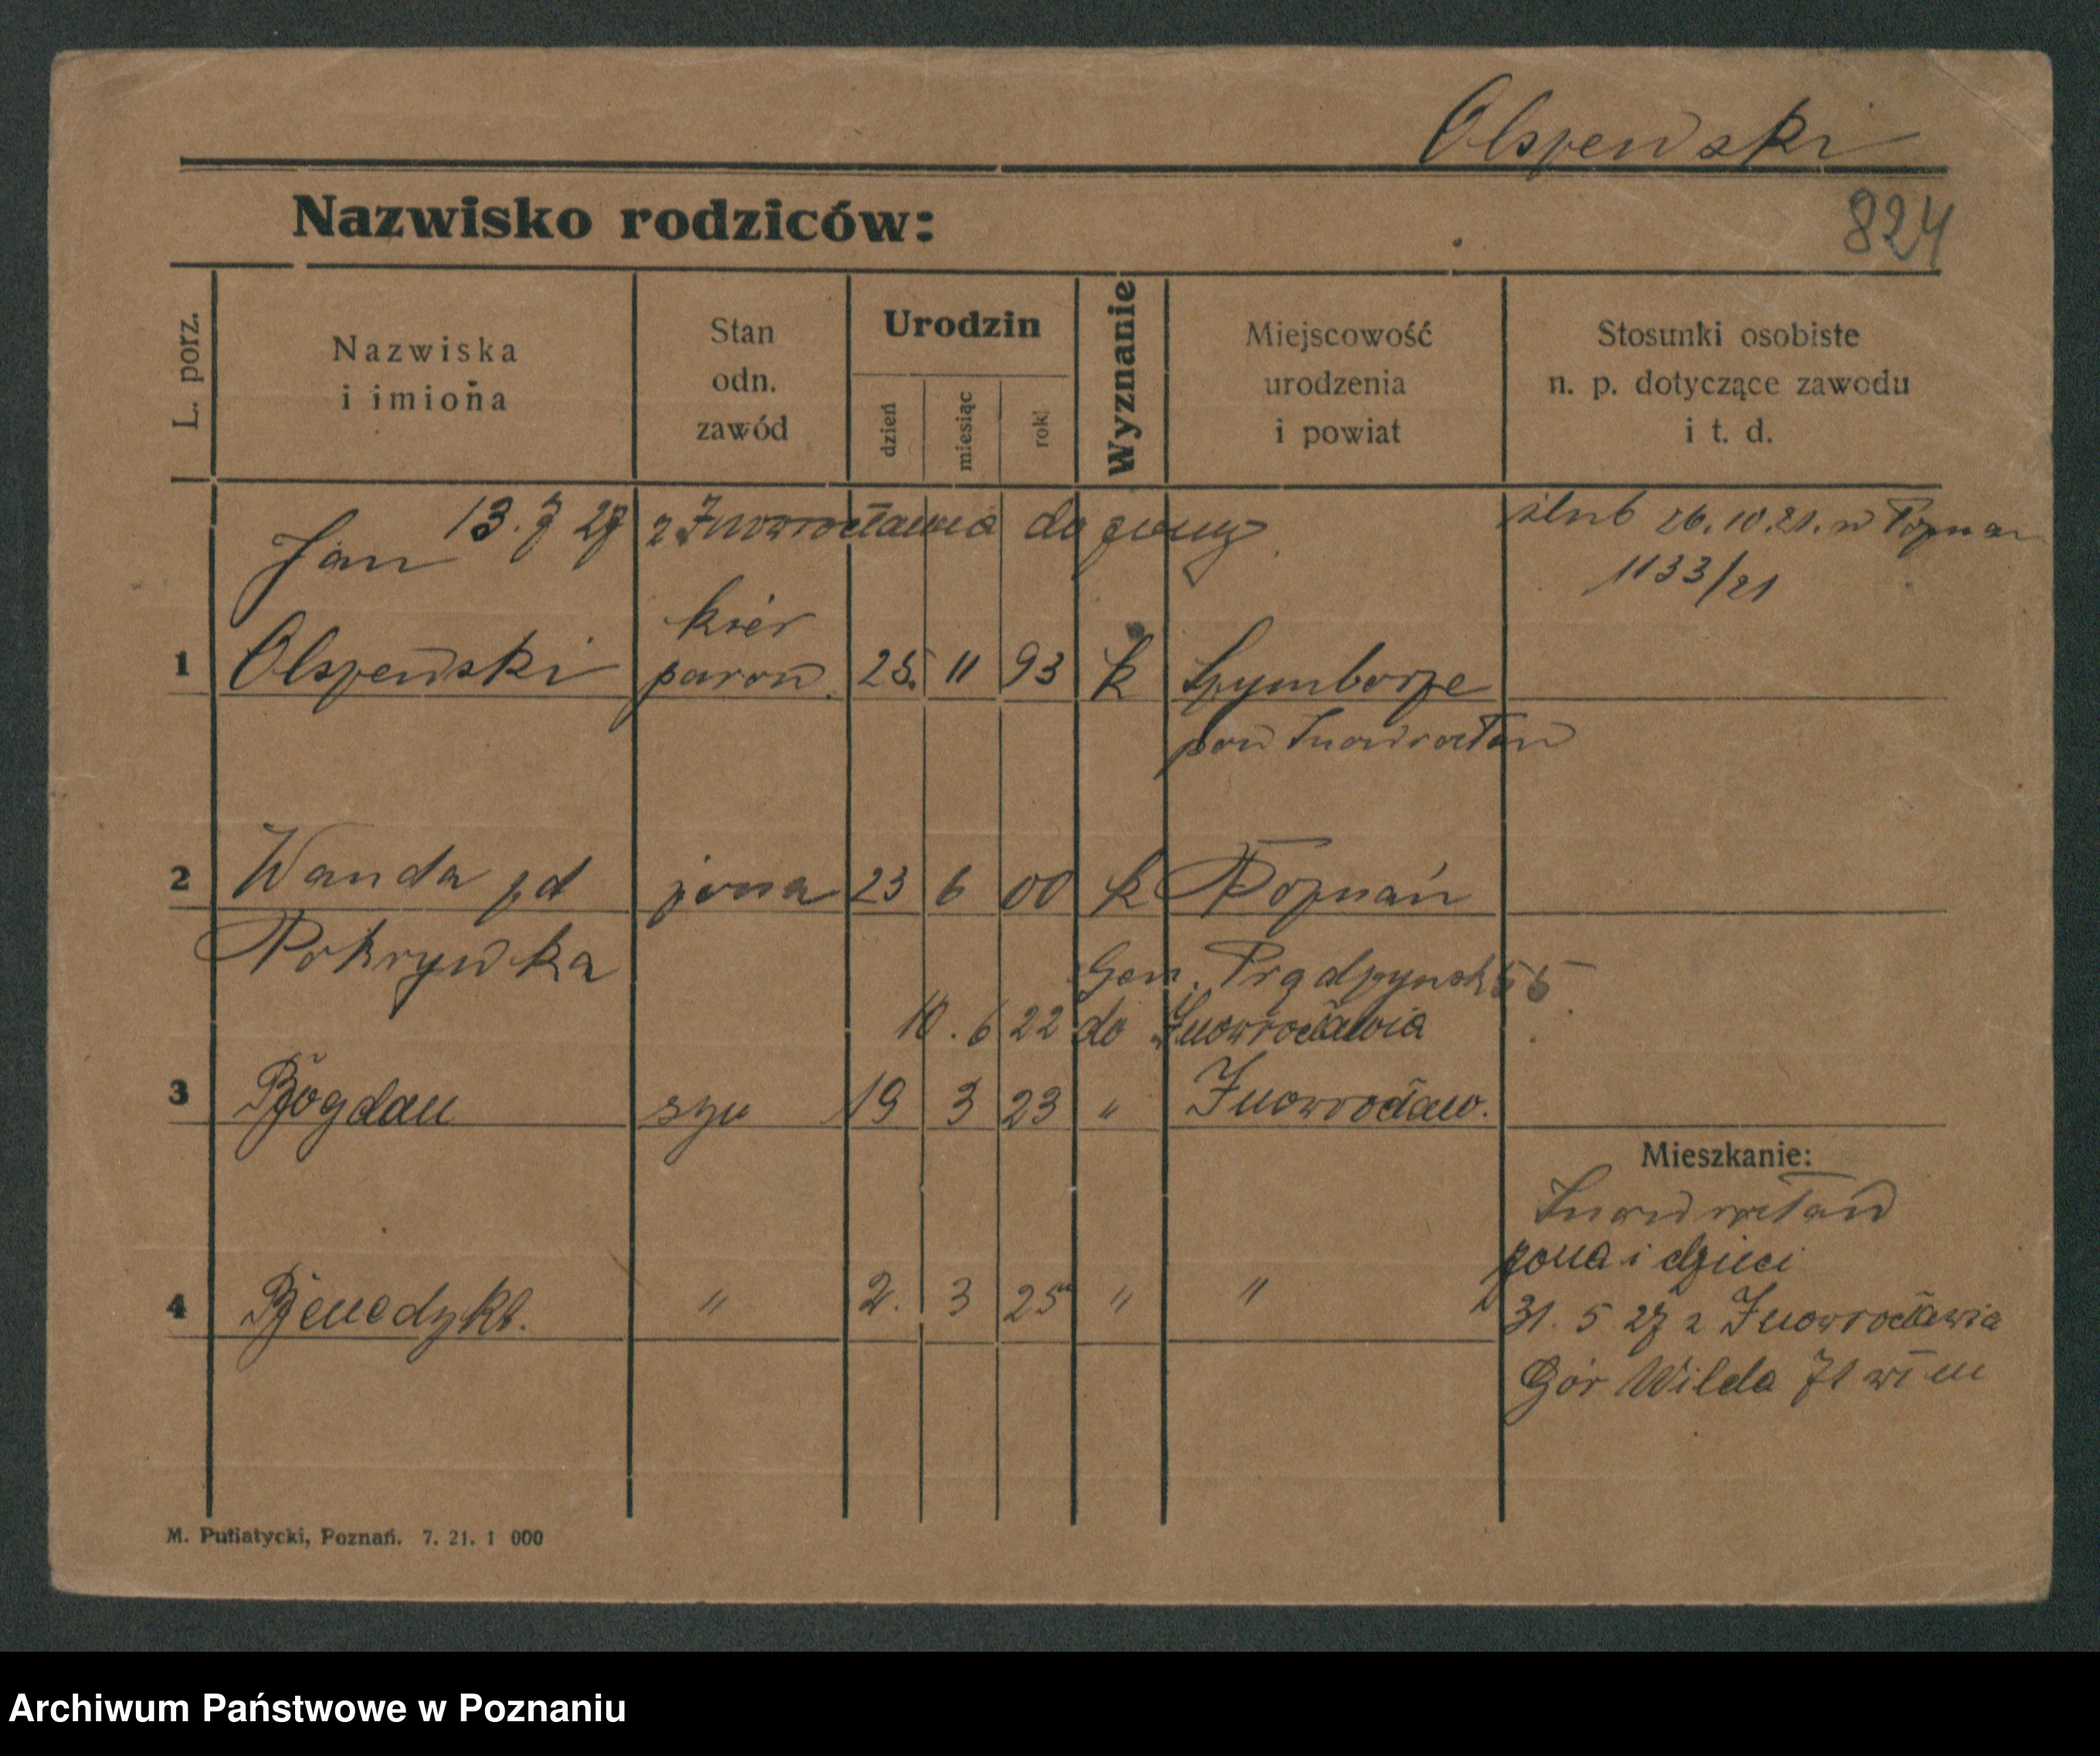 Olszewski
Nazwisko rodziców:
824
L. porz.
Nazwiska i imiona
Stan odn. zawód
Urodzin
dzień
miesiąc
rok
Wyznanie
Miejscowość urodzenia i powiat
Stosunki osobiste n. p. dotyczące zawodu i t. d.
13. 7 27 z Inowrocławia do żony
ślub 26.10.21. w Poznań
1133/21
Jan
kier
1 Olszewski parow. 25. 11 93 k Szymborze
pow Inowrocław
2 Wanda zd żona 23 6 00 k Poznań
Pokrywka
Gen. Prądzyńsk 55
10. 6 22 do Inowrocławia
3 Bogdan syn 19 3 23 " Inowrocław.
Mieszkanie:
Inowrocław
żona i dzieci
4 Benedykt. " 2. 3 25 " "
31. 5 27 z Inowrocławia
Gór Wilda 71
M. Putiatycki, Poznań. 7. 21. 1 000
Archiwum Państwowe w Poznaniu